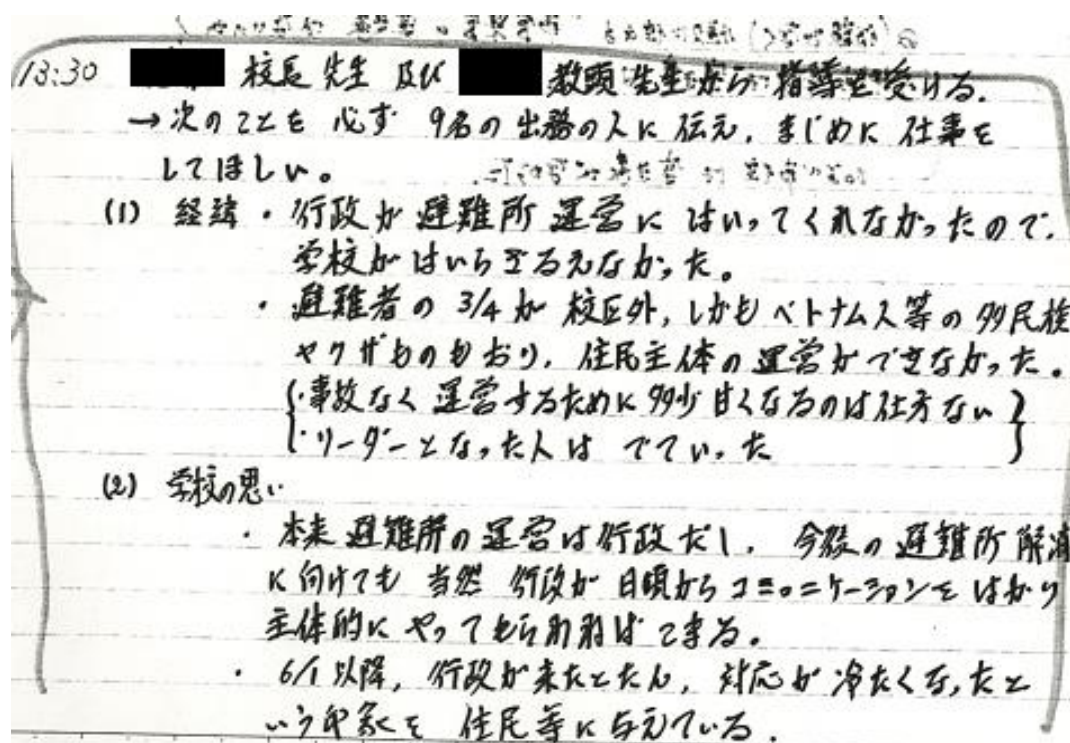 13:30 校長先生 及び 教頭先生から 指導を受ける.
→次のことを 必ず 9名の出務の人に伝え, まじめに 仕事を
してほしい。
(1) 経緯 ・ 行政が 避難所 運営に はいってくれなかったので,
学校がはいらざるえなかった。
・ 避難者の 3/4が 校区外, しかも ベトナム人等の 多民族
ヤクザものもおり, 住民主体の 運営ができなかった。
・事故なく 運営するために 多少 甘くなるのは仕方ない
・リーダーとなった人は でていった
(2) 学校の思い
・ 本来 避難所の 運営は行政だし, 今後の 避難所 解消
に向けても 当然 行政が 日頃から コミュニケーションを はかり
主体的に やってもらわねば こまる。
・ 6/1以降, 行政が来たとたん, 対応が 冷たくなったと
いう印象を 住民等に与えている.